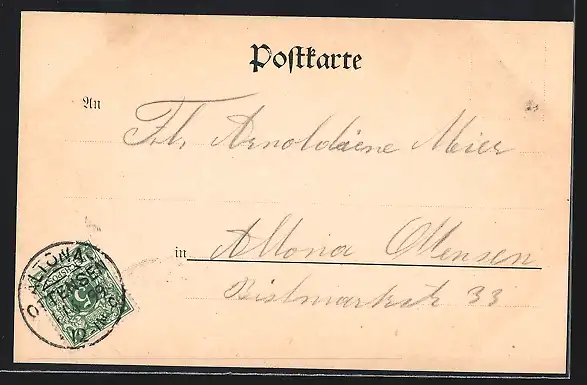 Postkarte
An
Frl. Arnoldiene Meier
in
Altona Ottensen
Bismarkstr 33
ALTONA
OTTENSEN